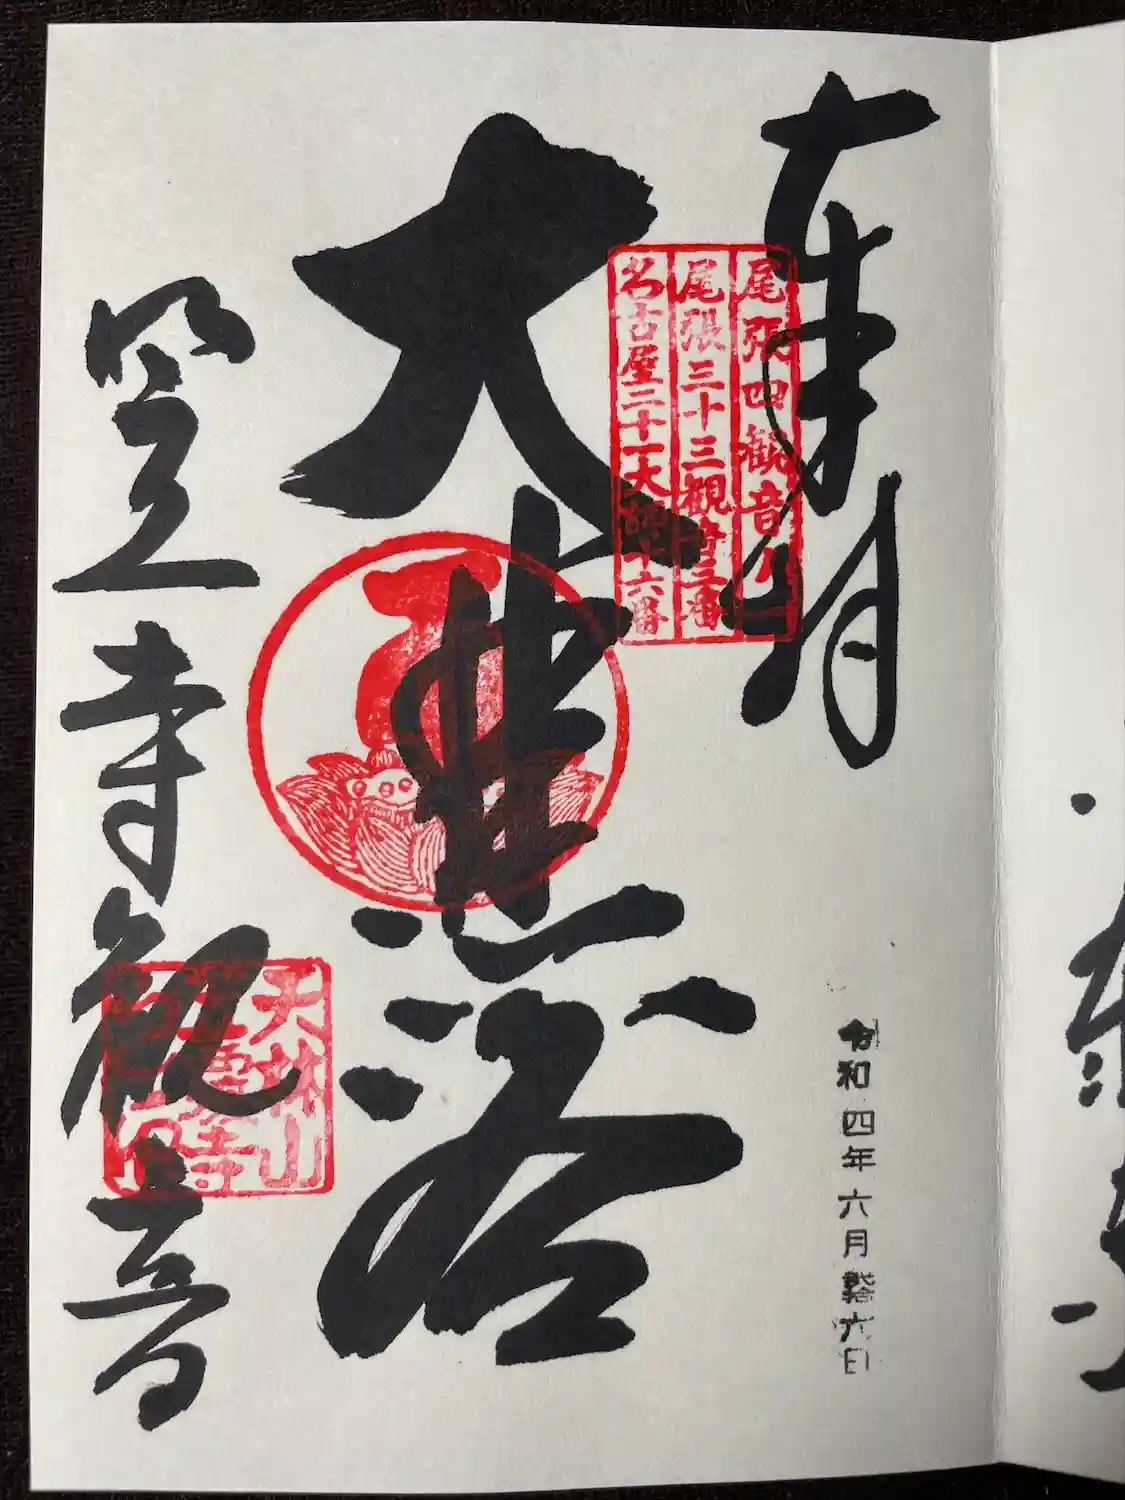 奉拝
尾張四観音
尾張三十三観音三番
名古屋二十一大師十六番
大悲閣
笠寺観音
天林山
令和四年六月
六日